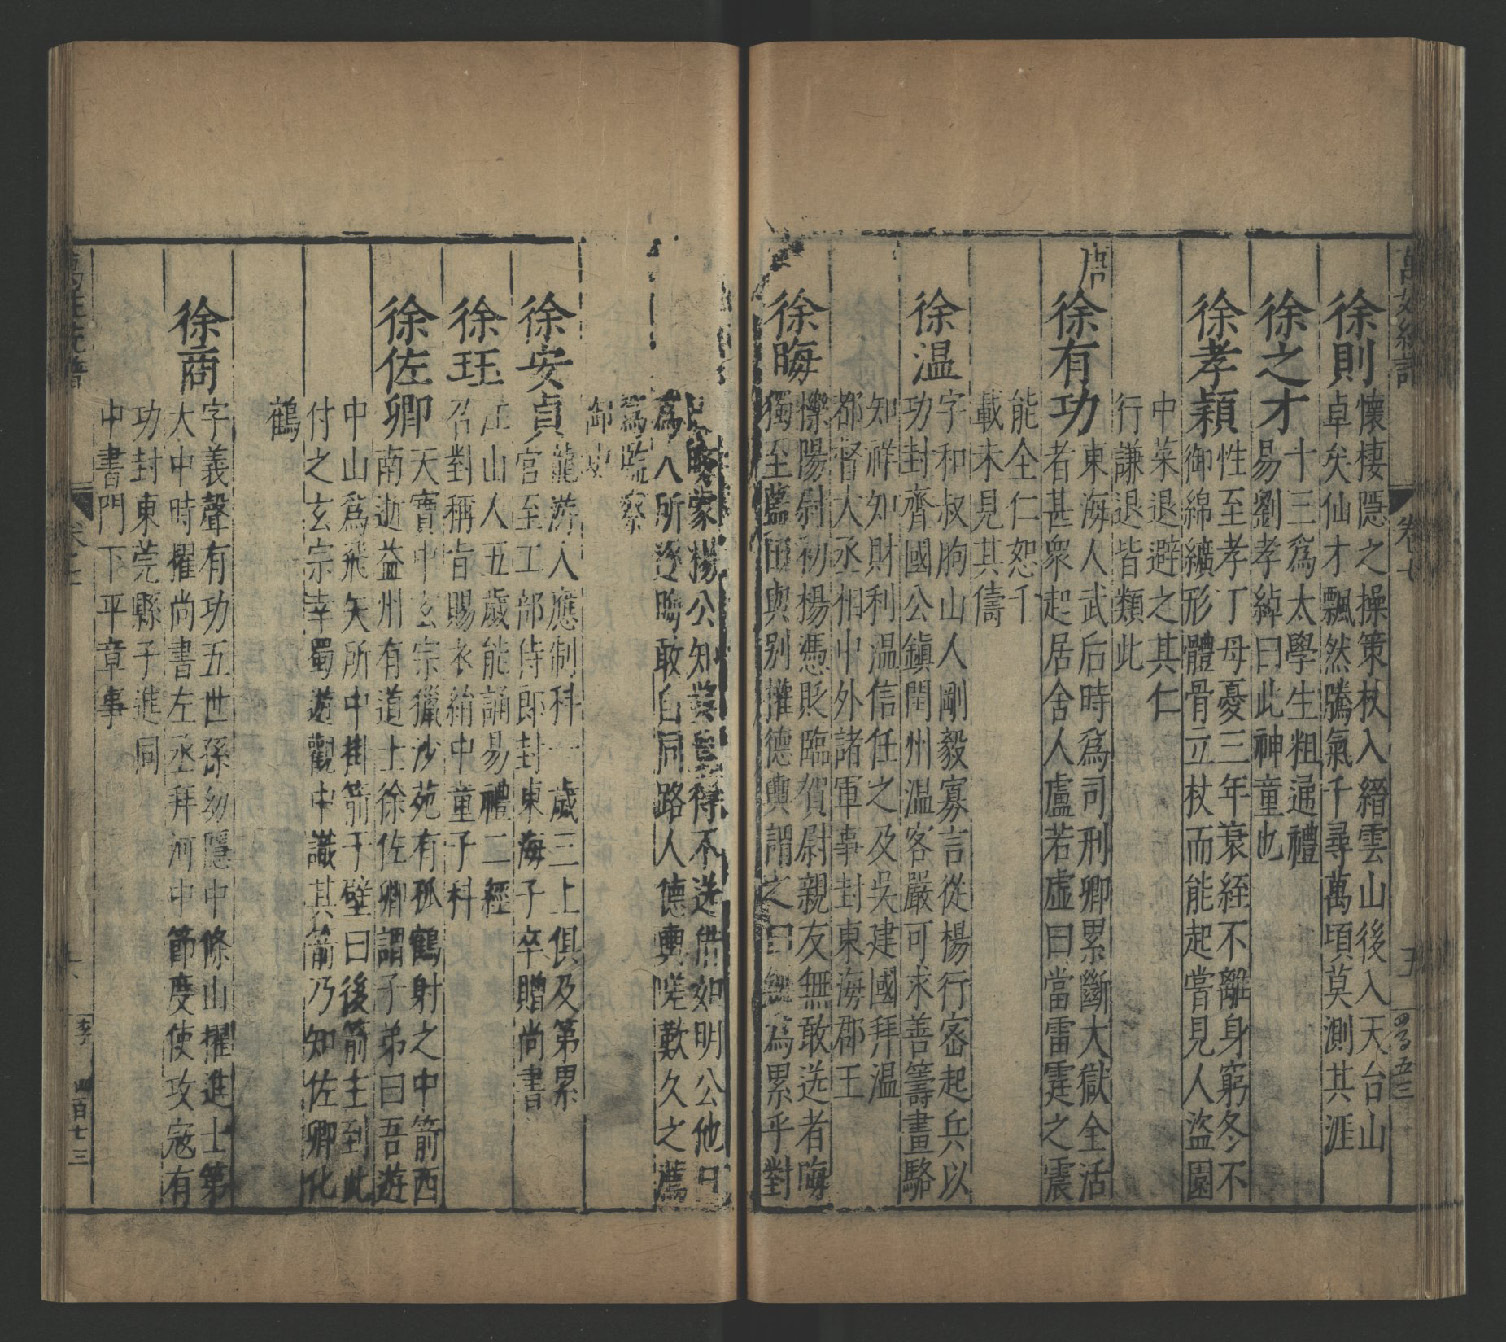 徐則
懷棲隱之操策杖入縉雲山後入天台山
卓矣仙才飄然騰氣千尋萬頃莫測其涯
徐之才
十三爲太學生粗通禮
易劉孝綽曰此神童也
徐孝穎
性至孝丁母憂三年衰絰不離身窮冬不
御綿纊形體骨立杖而能起嘗見人盜園
中菜退避之其仁
行謙退皆類此
唐
徐有功
東海人武后時爲司刑卿累斷大獄全活
者甚衆起居舍人盧若虛曰當雷霆之震
能全仁恕千
載未見其儔
徐温
字和叔朐山人剛毅寡言從楊行密起兵以
功封齊國公鎮閏州温客嚴可求善籌畫駱
知祥知財利温信任之及吳建國拜温
都督大丞相中外諸軍事封東海郡王
徐晦
櫟陽尉初楊憑貶臨賀尉親友無敢送者晦
獨至藍田與别權德輿謂之曰無爲累乎對
蒙楊公知奨豈得不送借如明公他日
爲人所逐晦敢自同路人德輿嗟歎久之薦
爲監察
御史
徐安貞
龍游人應制科一歲三上俱及第累
官至工部侍郎封東海子卒贈尚書
徐珏
江山人五歲能誦易禮二經
召對稱旨賜衣給中童子科
徐佐卿
天寶中玄宗獵沙苑有孤鶴射之中箭西
南逝益州有道士徐佐卿謂子弟曰吾遊
中山爲飛矢所中掛箭于壁曰後箭主到此
付之玄宗幸蜀遊觀中識其箭乃知佐卿化
鶴
徐商
字義聲有功五世孫幼隱中條山擢進士第
大中時擢尚書左丞拜河中節度使攻寇有
功封東莞縣子進同
中書門下平章事
四百七十三